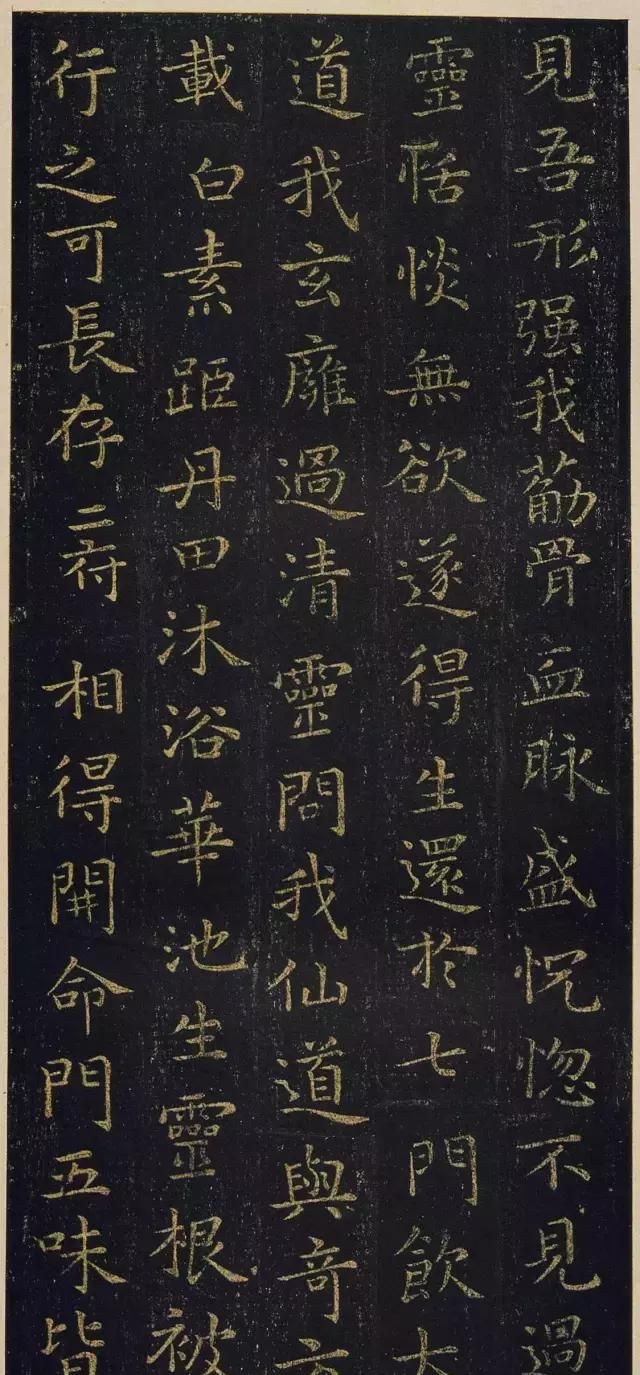 見吾形强我葋骨血脉盛怳惚不見過
靈恬惔無欲遂得生還於七門飲大
道我玄廱過清靈問我仙道與奇方
載白素距丹田沐浴華池生靈根被
行之可長存二府相得開命門五味皆